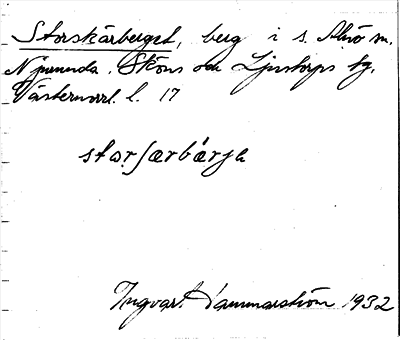 Storskärberget, berg i s. Alnö m.
Njurunda, Sköns och Ljustorps tg.
Västernorrl. l. 17
storʃærbærjə
Ingvart Hammarström 1932